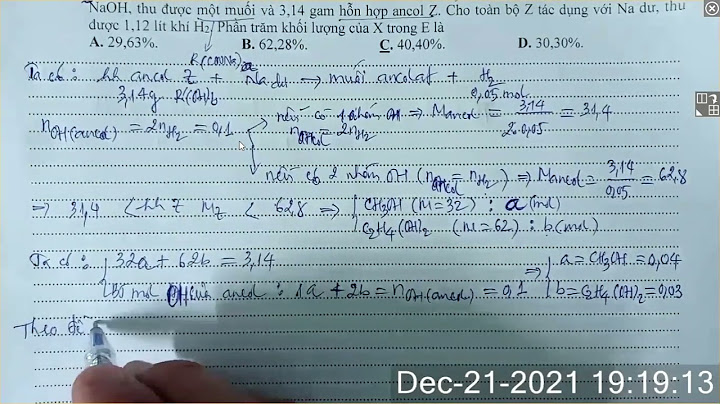 NaOH, thu được một muối và 3,14 gam hỗn hợp ancol Z. Cho toàn bộ Z tác dụng với Na dư, thu
được 1,12 lít khí H₂. Phần trăm khối lượng của X trong E là
A. 29,63%. B. 62,28%. C. 40,40%. D. 30,30%.
Ta có : hh ancol Z + Na dư → muối ancolat + H₂
3,14g R(OH)b 0,05 mol
nếu có 1 nhóm OH ⇒ Mancol = 3,14 / 2.0,05 = 31,4
nOH(ancol) = 2nH₂ = 0,1 nOH ancol = 2nH₂
nếu có 2 nhóm OH (nOH ancol = nH₂) ⇒ Mancol = 3,14 / 0,05 = 62,8
⇒ 31,4 < hh Z MZ < 62,8 ⇒ CH₃OH (M=32) : a (mol)
C₂H₄(OH)₂ (M=62) : b (mol)
Ta có : 32a + 62b = 3,14 ⇒ a = CH₃OH = 0,04
Số mol OH của ancol : 1a + 2b = nOH(ancol) = 0,1 b = C₂H₄(OH)₂ = 0,03
Theo đề
Dec-21-2021 19:19:13